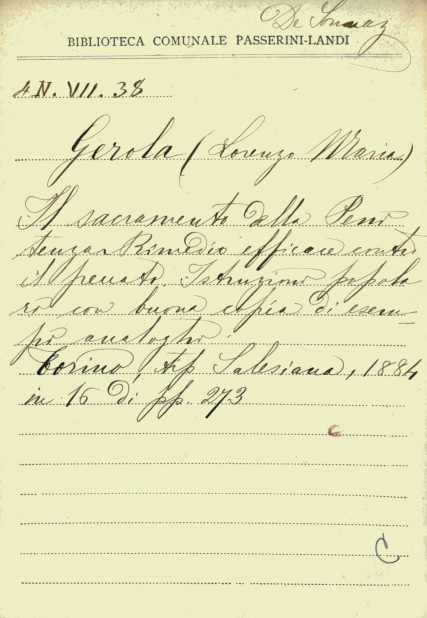 De Sonnaz
BIBLIOTECA COMUNALE PASSERINI-LANDI
4 N. VII. 38
Gerola (Lorenzo Maria)
Il sacramento della Peni
tenza Rimedio efficace contro
il peccato. Istruzioni popola
ri con buona copia di esem-
pi analoghi.
Torino, tip Salesiana, 1884
in 16 di pp. 273
C